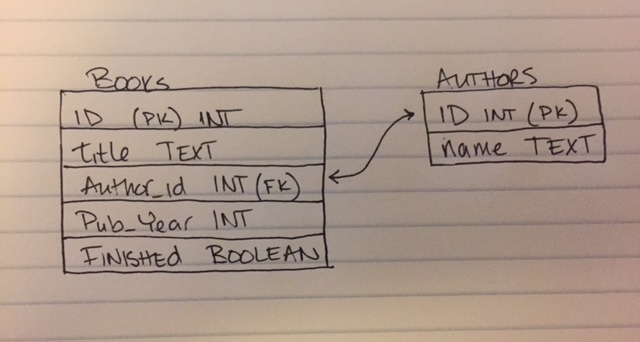 BOOKS
ID (PK) INT
title TEXT
Author_id INT (FK)
Pub_Year INT
FINISHED BOOLEAN
AUTHORS
ID INT (PK)
name TEXT